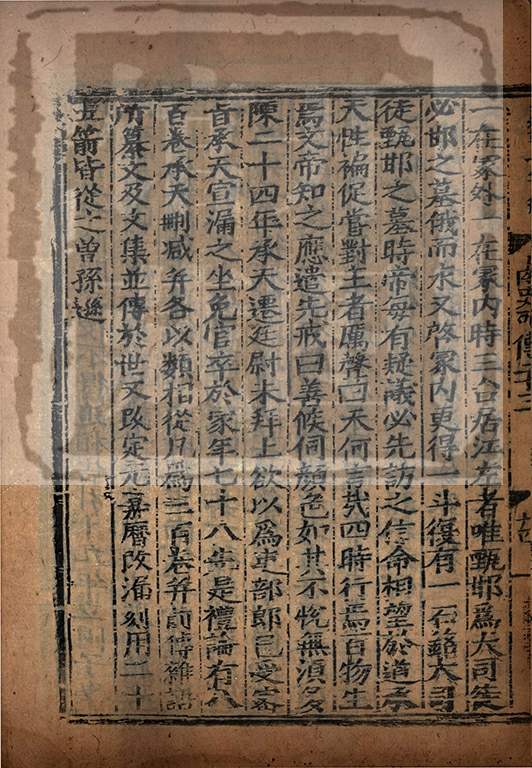 一在冢外一在冢内時三台居江左者唯甄邯爲大司徒
必邯之墓俄而永又啓冢内更得一斗復有一石銘大司
徒甄邯之墓時帝每有疑議必先訪之信命相望於道承
天性褊促嘗對主者厲聲曰天何言哉四時行焉百物生
焉文帝知之應遣先戒曰善候伺顔色如其不悅無須多
陳二十四年承天遷廷尉未拜上欲以爲吏部郎已受密
旨承天宣漏之坐免官卒於家年七十八先是禮論有八
百卷承天刪减并各以類相從凡爲三百卷并前傳雜語
所纂文及文集並傳於世又改定元嘉曆改漏刻用二十
五箭皆從之曽孫遜